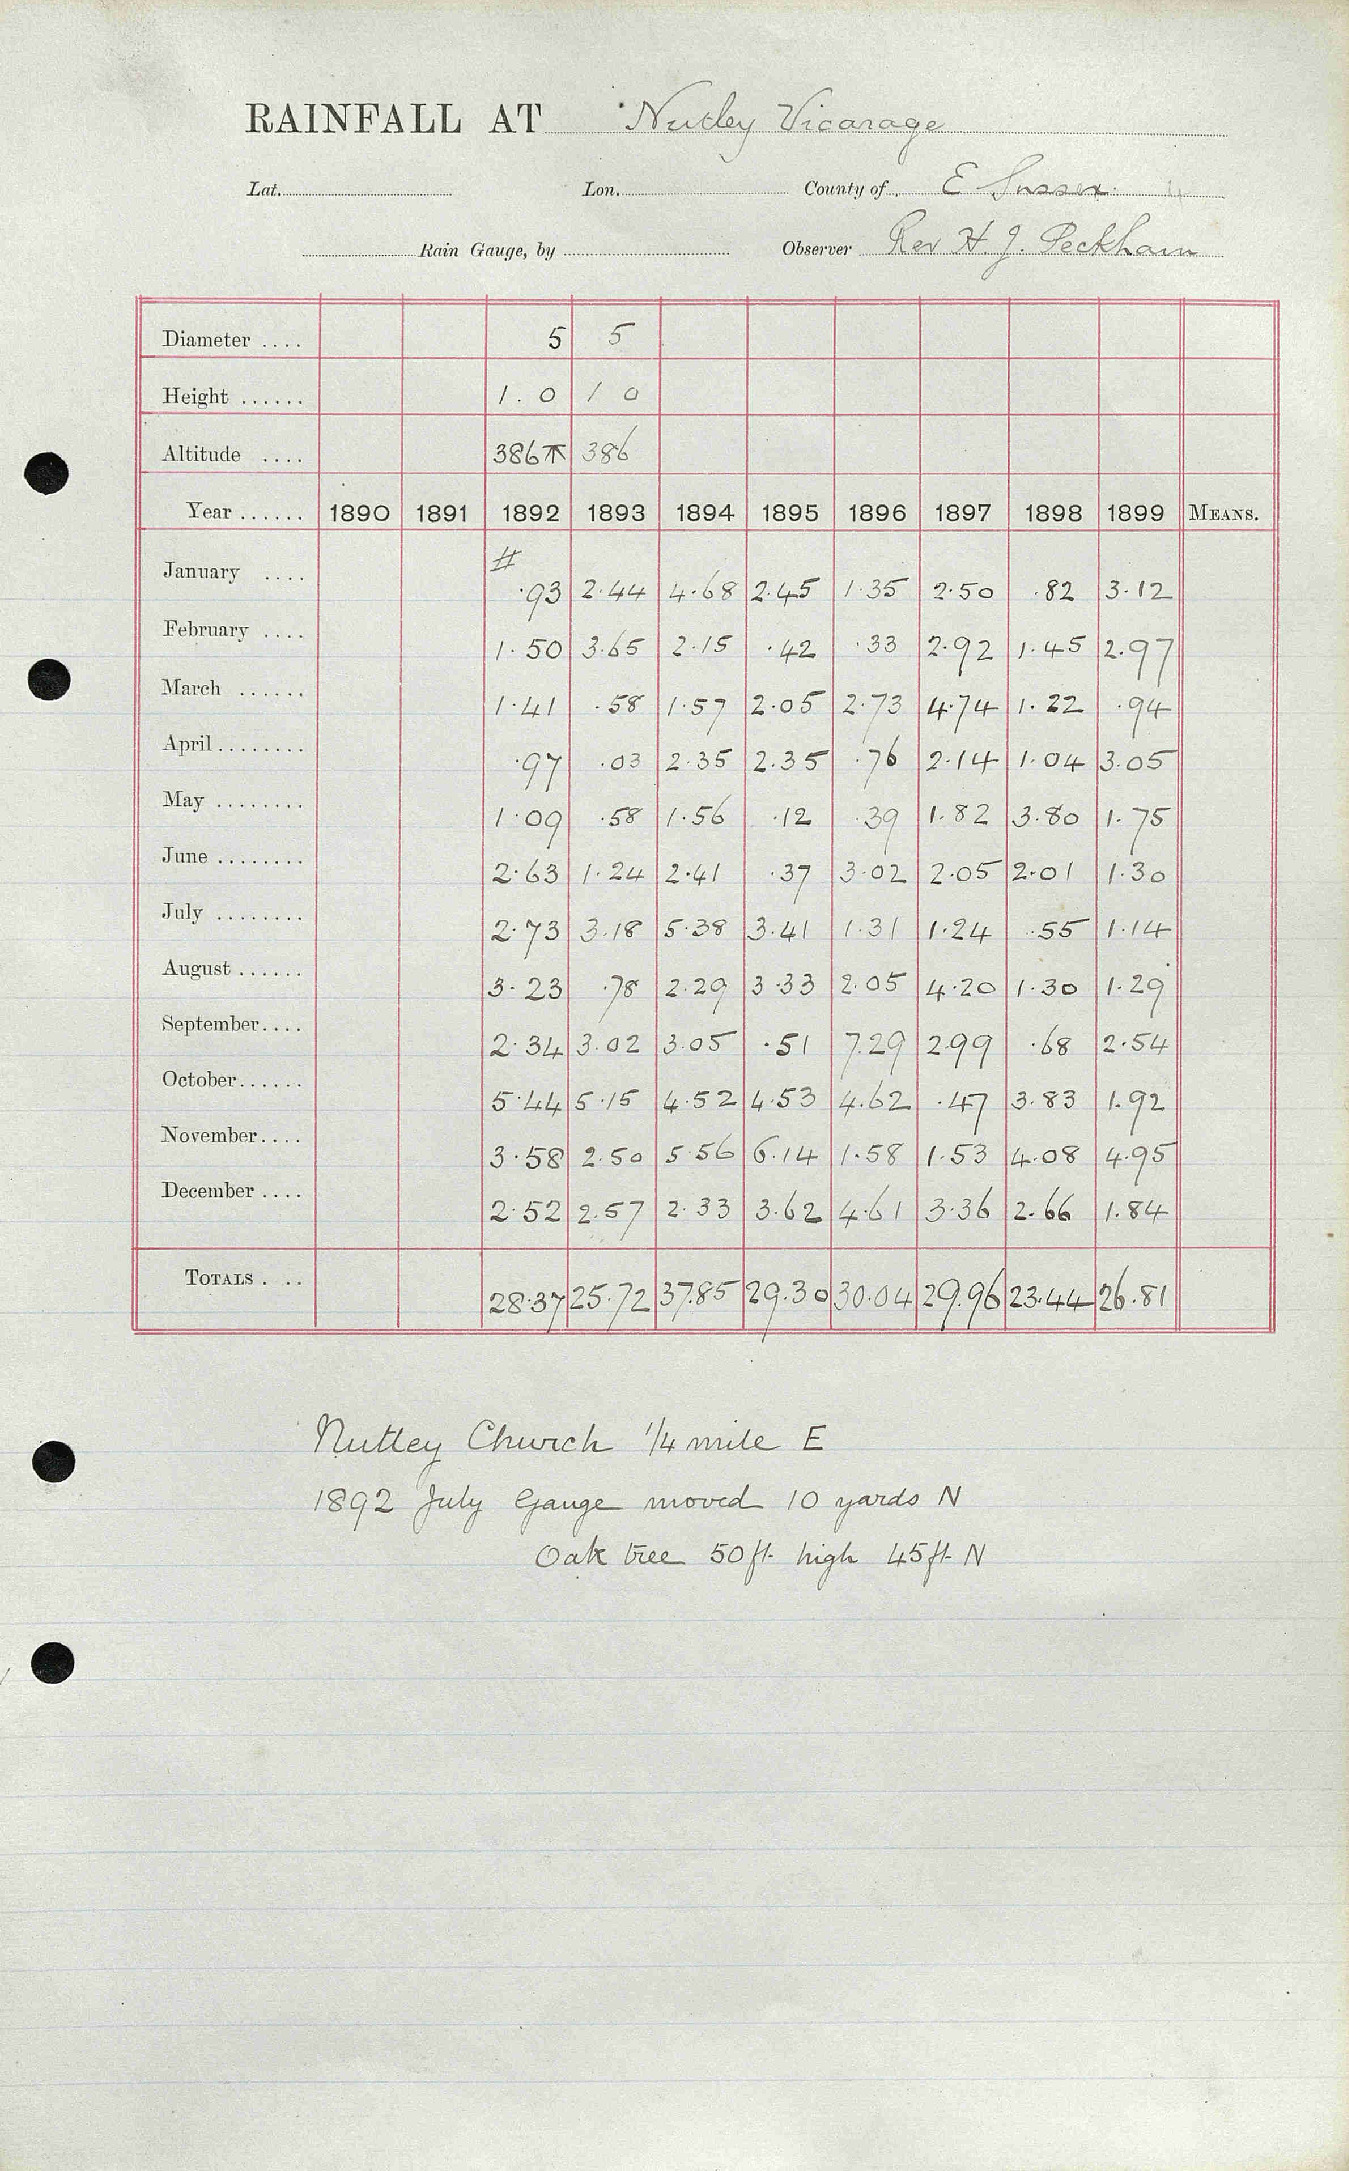 RAINFALL AT Nutley Vicarage
Lat. Lon. County of E Sussex
Rain Gauge, by Observer Rev H. J. Peckham
Diameter .... 5 5
Height ...... 1.0 1 0
Altitude .... 386 386
Year ...... 1890 1891 1892 1893 1894 1895 1896 1897 1898 1899 MEANS.
January .... # .93 2.44 4.68 2.45 1.35 2.50 .82 3.12
February .... 1.50 3.65 2.15 .42 .33 2.92 1.45 2.97
March ...... 1.41 .58 1.57 2.05 2.73 4.74 1.22 .94
April ........ .97 .03 2.35 2.35 .76 2.14 1.04 3.05
May ........ 1.09 .58 1.56 .12 .39 1.82 3.80 1.75
June ........ 2.63 1.24 2.41 .37 3.02 2.05 2.01 1.30
July ........ 2.73 3.18 5.38 3.41 1.31 1.24 .55 1.14
August ...... 3.23 .78 2.29 3.33 2.05 4.20 1.30 1.29
September.... 2.34 3.02 3.05 .51 7.29 2.99 .68 2.54
October...... 5.44 5.15 4.52 4.53 4.62 .47 3.83 1.92
November.... 3.58 2.50 5.56 6.14 1.58 1.53 4.08 4.95
December .... 2.52 2.57 2.33 3.62 4.61 3.36 2.66 1.84
TOTALS . .. 28.37 25.72 37.85 29.30 30.04 29.96 23.44 26.81
Nutley Church 1/4 mile E
1892 July Gauge moved 10 yards N
Oak tree 50ft. high 45ft. N